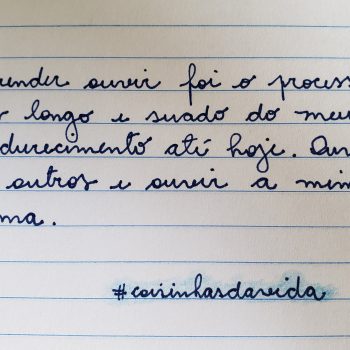 ender ouvir foi o process
longo e suado do meu
durecimento até hoje. Ouv
outros e ouvir a mim
ma.
#coisinhasdavida